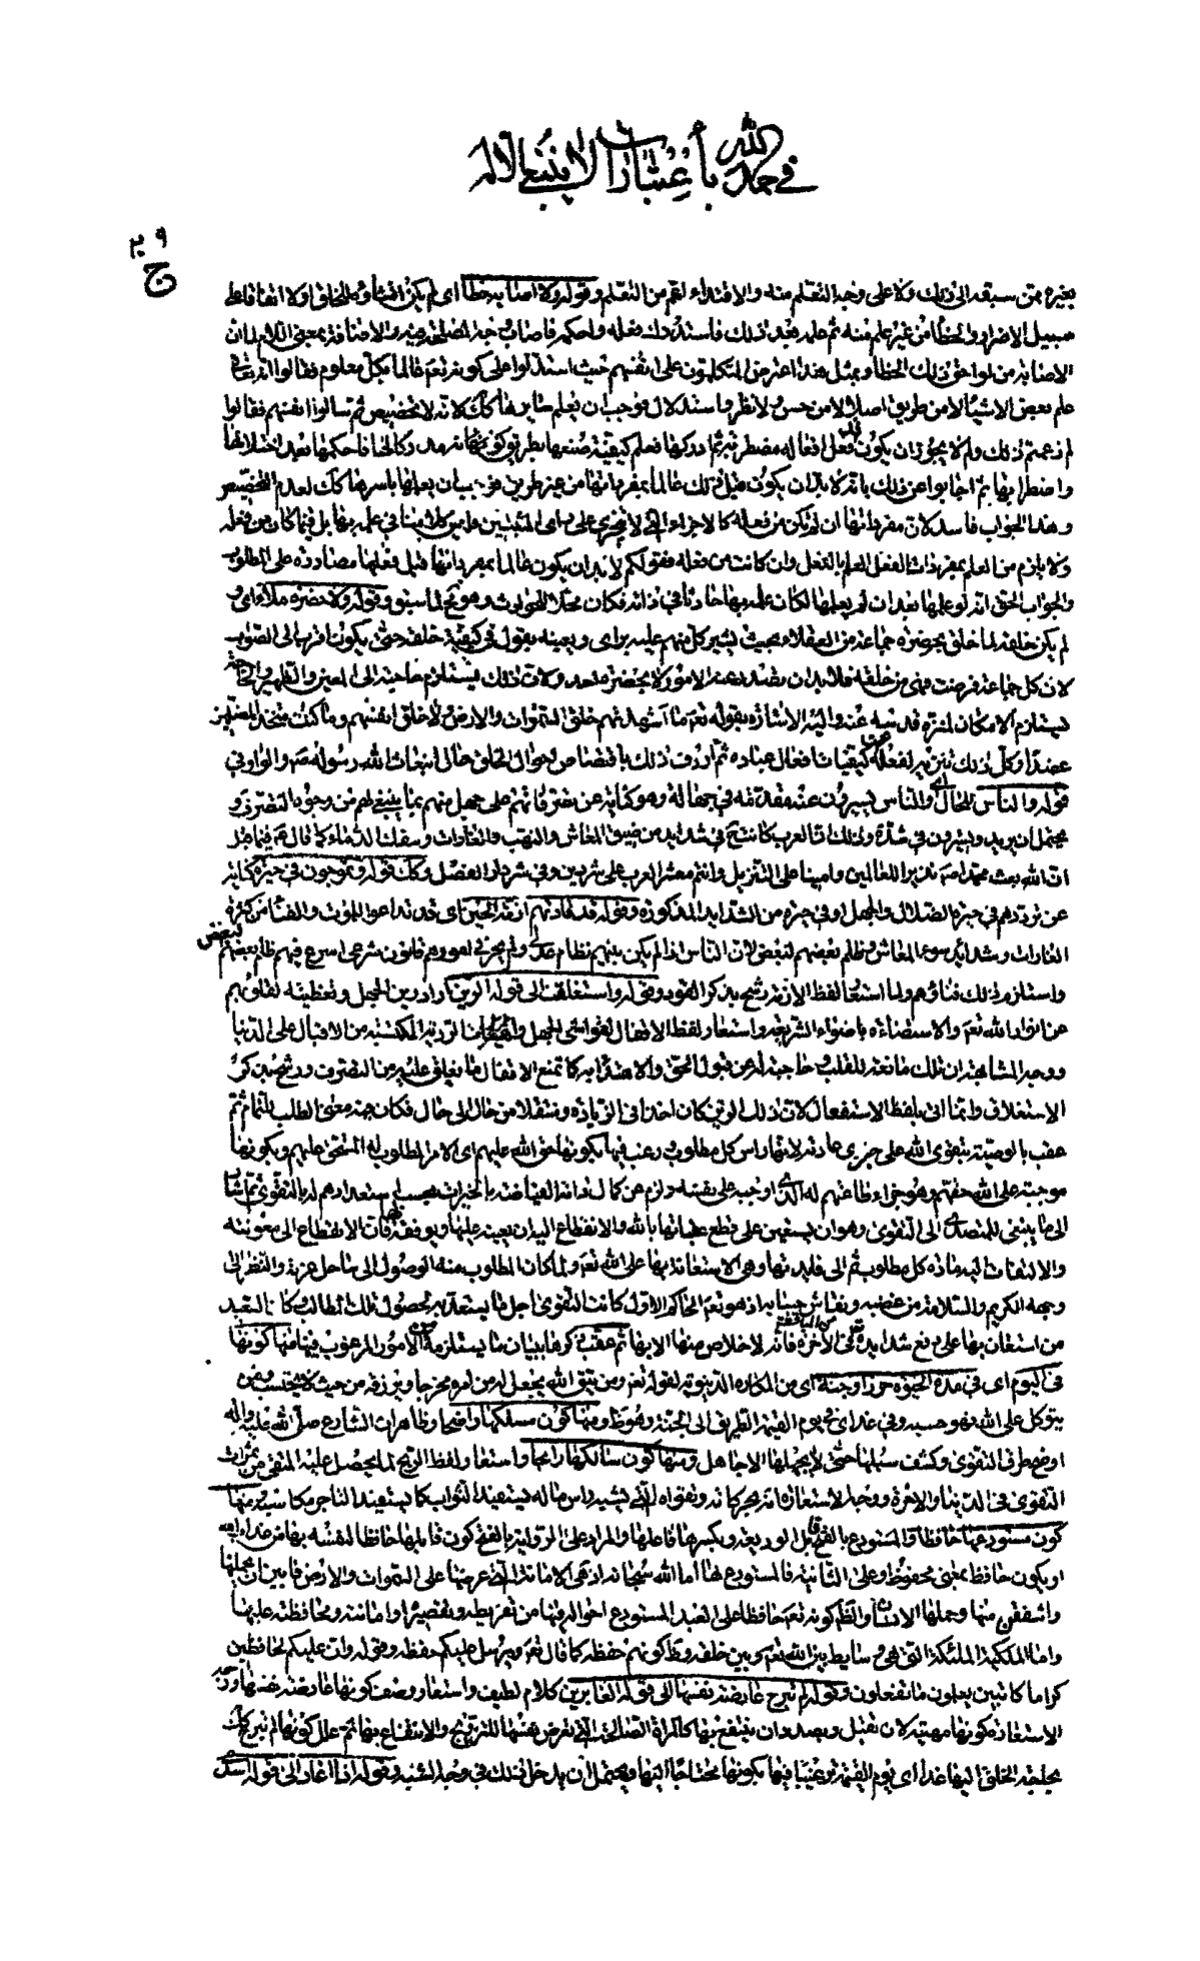 في حمد الله باعتبارات لا ينبغي الا له
ج
بغيره ممن سبقه الى ذلك ولا على وجه التعلم منه والاقتداء اعم من التعلم وقوله ولا اصابة خطأ اى لم يكن انشاؤه للخلق اولا اتفاقا على
سبيل الاضطراب والخطأ من غير علم منه ثم علمه بعد ذلك فاستدرك فعله واحكمه فاصاب وجه المصلحة فيه والاضافة بمعنى اللام لما ان
الاصابة من لواحق ذلك الخطأ وبمثل هذا اعترض المتكلمون على انفسهم حيث استدلوا على كونه تعالى عالما بكل معلوم فقالوا انه تعالى
علم بعض الاشياء لا من طريق اصلا لا من حس ولا نظر واستدلال فوجب ان يعلم سايرها كك لانه لا تخصيص ثم سالوا انفسهم فقالوا
لم زعمتم ذلك ولم لا يجوز ان يكون قد فعل افعاله مضطربة ثم ادركها فعلم كيفية صنعها بطريق كونه مدركا لها فاحكمها بعد اختلافها
واضطرابها ثم اجابوا عن ذلك بانه لا بد ان يكون قبل ذلك عالما بمفرداتها من غير طريق فوجب ان يعلمها باسرها كك لعدم التخصيص
وهذا الجواب فاسد لان مفرداتها ان لم تكن من فعله كالاجزاء التى لا تتجزى على راى المثبتين وليس كلامنا في علمه بها بل فيما كان من فعله
ولا يلزم من العلم بمفردات الفعل العلم بالفعل وان كانت من فعله فقولكم لا بد ان يكون عالما بمفرداتها قبل فعلها مصادرة على المطلوب
والجواب الحق انه لو علمها بعد ان لم يعلمها لكان علمه بها حادثا في ذاته فكان محلا للحوادث وهو مح لما سبق وقوله ولا حضرة ملاء اى
لم يكن خلقه لما خلق بحضرة جماعة من العقلاء بحيث يشير كل منهم عليه براى ويعينه بقول في كيفية خلقه حتى يكون اقرب الى الصواب
لان كل جماعة فرضت فهى من خلقه فلا بد ان تصدر عنه الامور لا بحضرة احد ولان ذلك يستلزم حاجته الى المعين والظهير والحاجة
يستلزم الامكان المنزه قدسه عنه واليه الاشارة بقوله تعالى ما اشهدتهم خلق السموات والارض ولا خلق انفسهم وما كنت متخذ المضلين
عضدا وكل ذلك تنزيه لفعله عن كيفيات افعال عباده ثم اردف ذلك باقتصاص احوال الخلق حال انبعاث الله رسوله صم والواو في
قوله والناس للحال اى والناس يسيرون عند مقدمه في جهالة وهو كناية عن تصرفاتهم على جهل منهم بما ينبغي لهم من وجوه التصرف و
يحتمل ان يريد ويسيرون في شدة وذلك ان العرب كانت ح في شدايد من ضيق المعاش والنهب والغارات وسفك الدماء كما قال ع فيما قبل
ان الله بعث محمدا صم نذيرا للعالمين وامينا على التنزيل وانتم معشر العرب على شر دين وفي شر دار الفصل وكك قوله ويموجون في حيرة كناية
عن ترددهم في حيرة الضلال والجهل او في حيرة من الشدايد المذكورة وقوله قد قادتهم ازمة الحين اى قد تداعوا للموت والفناء من كثرة
الغارات وشدائد سوء المعاش وظلم بعضهم لبعض لان الناس اذا لم يكن بينهم نظام عدلى ولم يجر في امورهم قانون شرعى اسرع فيهم ظلم بعضهم لبعض
واستلزم ذلك فناؤهم ولما استعار لفظ الازمة رشح بذكر القود وقوله واستغلقت الى قوله الرين اراد رين الجهل وتغطيته لقلوبهم
عن انوار الله تعالى والاستضاءة باضواء الشريعة واستعار لفظ الاقفال لغواشى الجهل والهيئات الردية المكتسبة من الاقبال على الدنيا
ووجه المشابهة ان تلك مانعة للقلب وحاجبة له عن قبول الحق والاهتداء به كما تمنع الاقفال ما يغلق عليه من التصرف ورشح بذكر
الاستغلاق وانما اتى بلفظ الاستفعال لان ذلك الرين كان اخذا في الزيادة ومنتقلا من حال الى حال فكان فيه معنى الطلب للتمام ثم
عقب بالوصية بتقوى الله على جرى عادته لانها راس كل مطلوب ورغب فيها بكونها حق الله عليهم اى الامر المطلوب له المستحق عليهم وبكونها
موجبة على الله حقهم وهو جزاء طاعتهم له الذى اوجبه على نفسه ولزم عن كمال ذاته الفياضة بالخيرات بحسب استعدادهم له بالتقوى ثم اشار
الى ما ينبغي للمتصدى الى التقوى وهو ان يستعين على قطع عقباتها بالله والانقطاع اليه ان يعينه عليها ويوفقه لها فان الانقطاع الى معونته
والالتفات اليه مادة كل مطلوب ثم الى فايدتها وهى الاستعانة بها على الله تعالى ولما كان المطلوب منه الوصول الى ساحل عزته والنظر الى
وجهه الكريم والسلامة من غضبه ونقاش حسابه اذ هو تعالى الحاكم الاول كانت التقوى اجل ما يستعد به لحصول تلك المطالب وكان السعيد
من استعان بها على دفع شدايده تعالى في الاخرة فانه لا خلاص منها الا بها ثم عقب ذكرها ببيان ما يستلزمه من الامور المرغوب فيها منها كونها
في اليوم اى في مدة الحيوة حرزا وجنة اى من المكاره الدنيوية لقوله تعالى ومن يتق الله يجعل له مخرجا ويرزقه من حيث لا يحتسب ومن
يتوكل على الله فهو حسبه وفي غد اى في يوم القيمة الطريق الى الجنة وهو ظ ومنها كون مسلكها واضحا وظاهر ان الشارع صلى الله عليه واله
اوضح طرق التقوى وكشف سبلها حتى لا يجهلها الا جاهل ومنها كون سالكها رابحا واستعار لفظ الربح لما يحصل عليه المتقى من ثمرات
التقوى في الدنيا والاخرة ووجه الاستعارة انه بحركاته وتقواه التى يشبه راس ماله يستفيد الثواب كما يستفيد التاجر مكاسبه ومنها
كون مستودعها حافظا والمستودع بالفتح قابل الوديعة وبكسرها فاعلها والمراد على الرواية بالفتح كون قابلها حافظا لنفسه بها من عذاب الله
او يكون حافظ بمعنى محفوظ وعلى الثانية فالمستودع لها اما الله سبحانه اذ هى الامانة التى عرضها على السموات والارض فابين ان يحملنها
واشفقن منها وحملها الانسان والظ كونه تعالى حافظا على العبد المستودع احواله فيها من تفريطه وتقصيره او امانته ومحافظته عليها
واما الملكية الملئكة التى هى وسايط بين الله تعالى وبين خلقه وظ كونهم حفظة كما قال تعالى ويرسل عليكم حفظة وقوله وان عليكم لحافظين
كراما كاتبين يعلمون ما تفعلون وقوله لم تبرح عارضة نفسها الى قوله الغابرين كلام لطيف واستعار وصف كونها عارضة نفسها ووجه
الاستعارة كونها مهيئة لان تقبل وبصدد ان ينتفع بها كالمراة الصالحة التى تعرض نفسها للتزويج والانتفاع بها ثم علل كونها لم تبرح كك
بحاجة الخلق اليها غدا اى يوم القيمة ترغيبا فيها بكونها محتاجا اليها ويحتمل ان يدخل ذلك في وجه الشبه وقوله اذا اعاد الى قوله اسدى